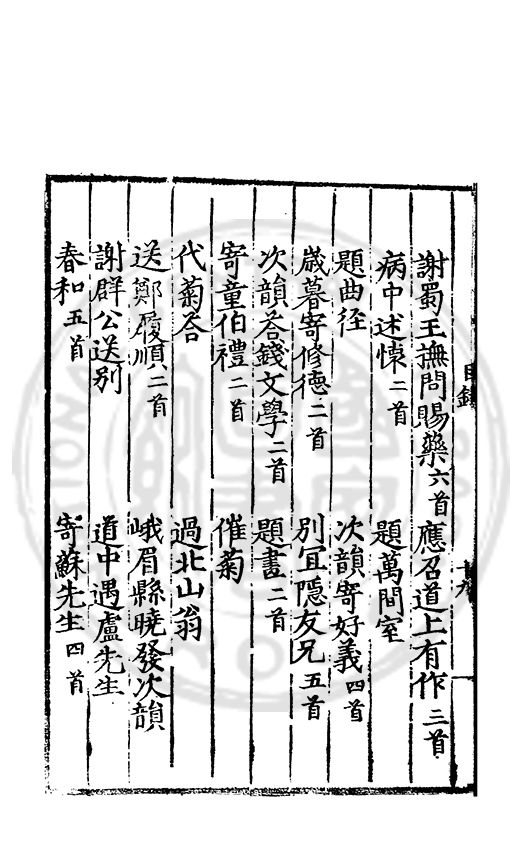 謝蜀王撫問賜藥六首　應召道上有作三首
病中述懷二首　題萬間室
題曲徑　次韻寄好義四首
歲暮寄修德二首　別宜隱友兄五首
次韻荅錢文學二首　題畫二首
寄童伯禮二首　催菊
代菊荅　過北山翁
送鄭履順二首　峨眉縣曉發次韻
謝群公送別　道中遇盧先生
春和五首　寄蘇先生四首
目錄